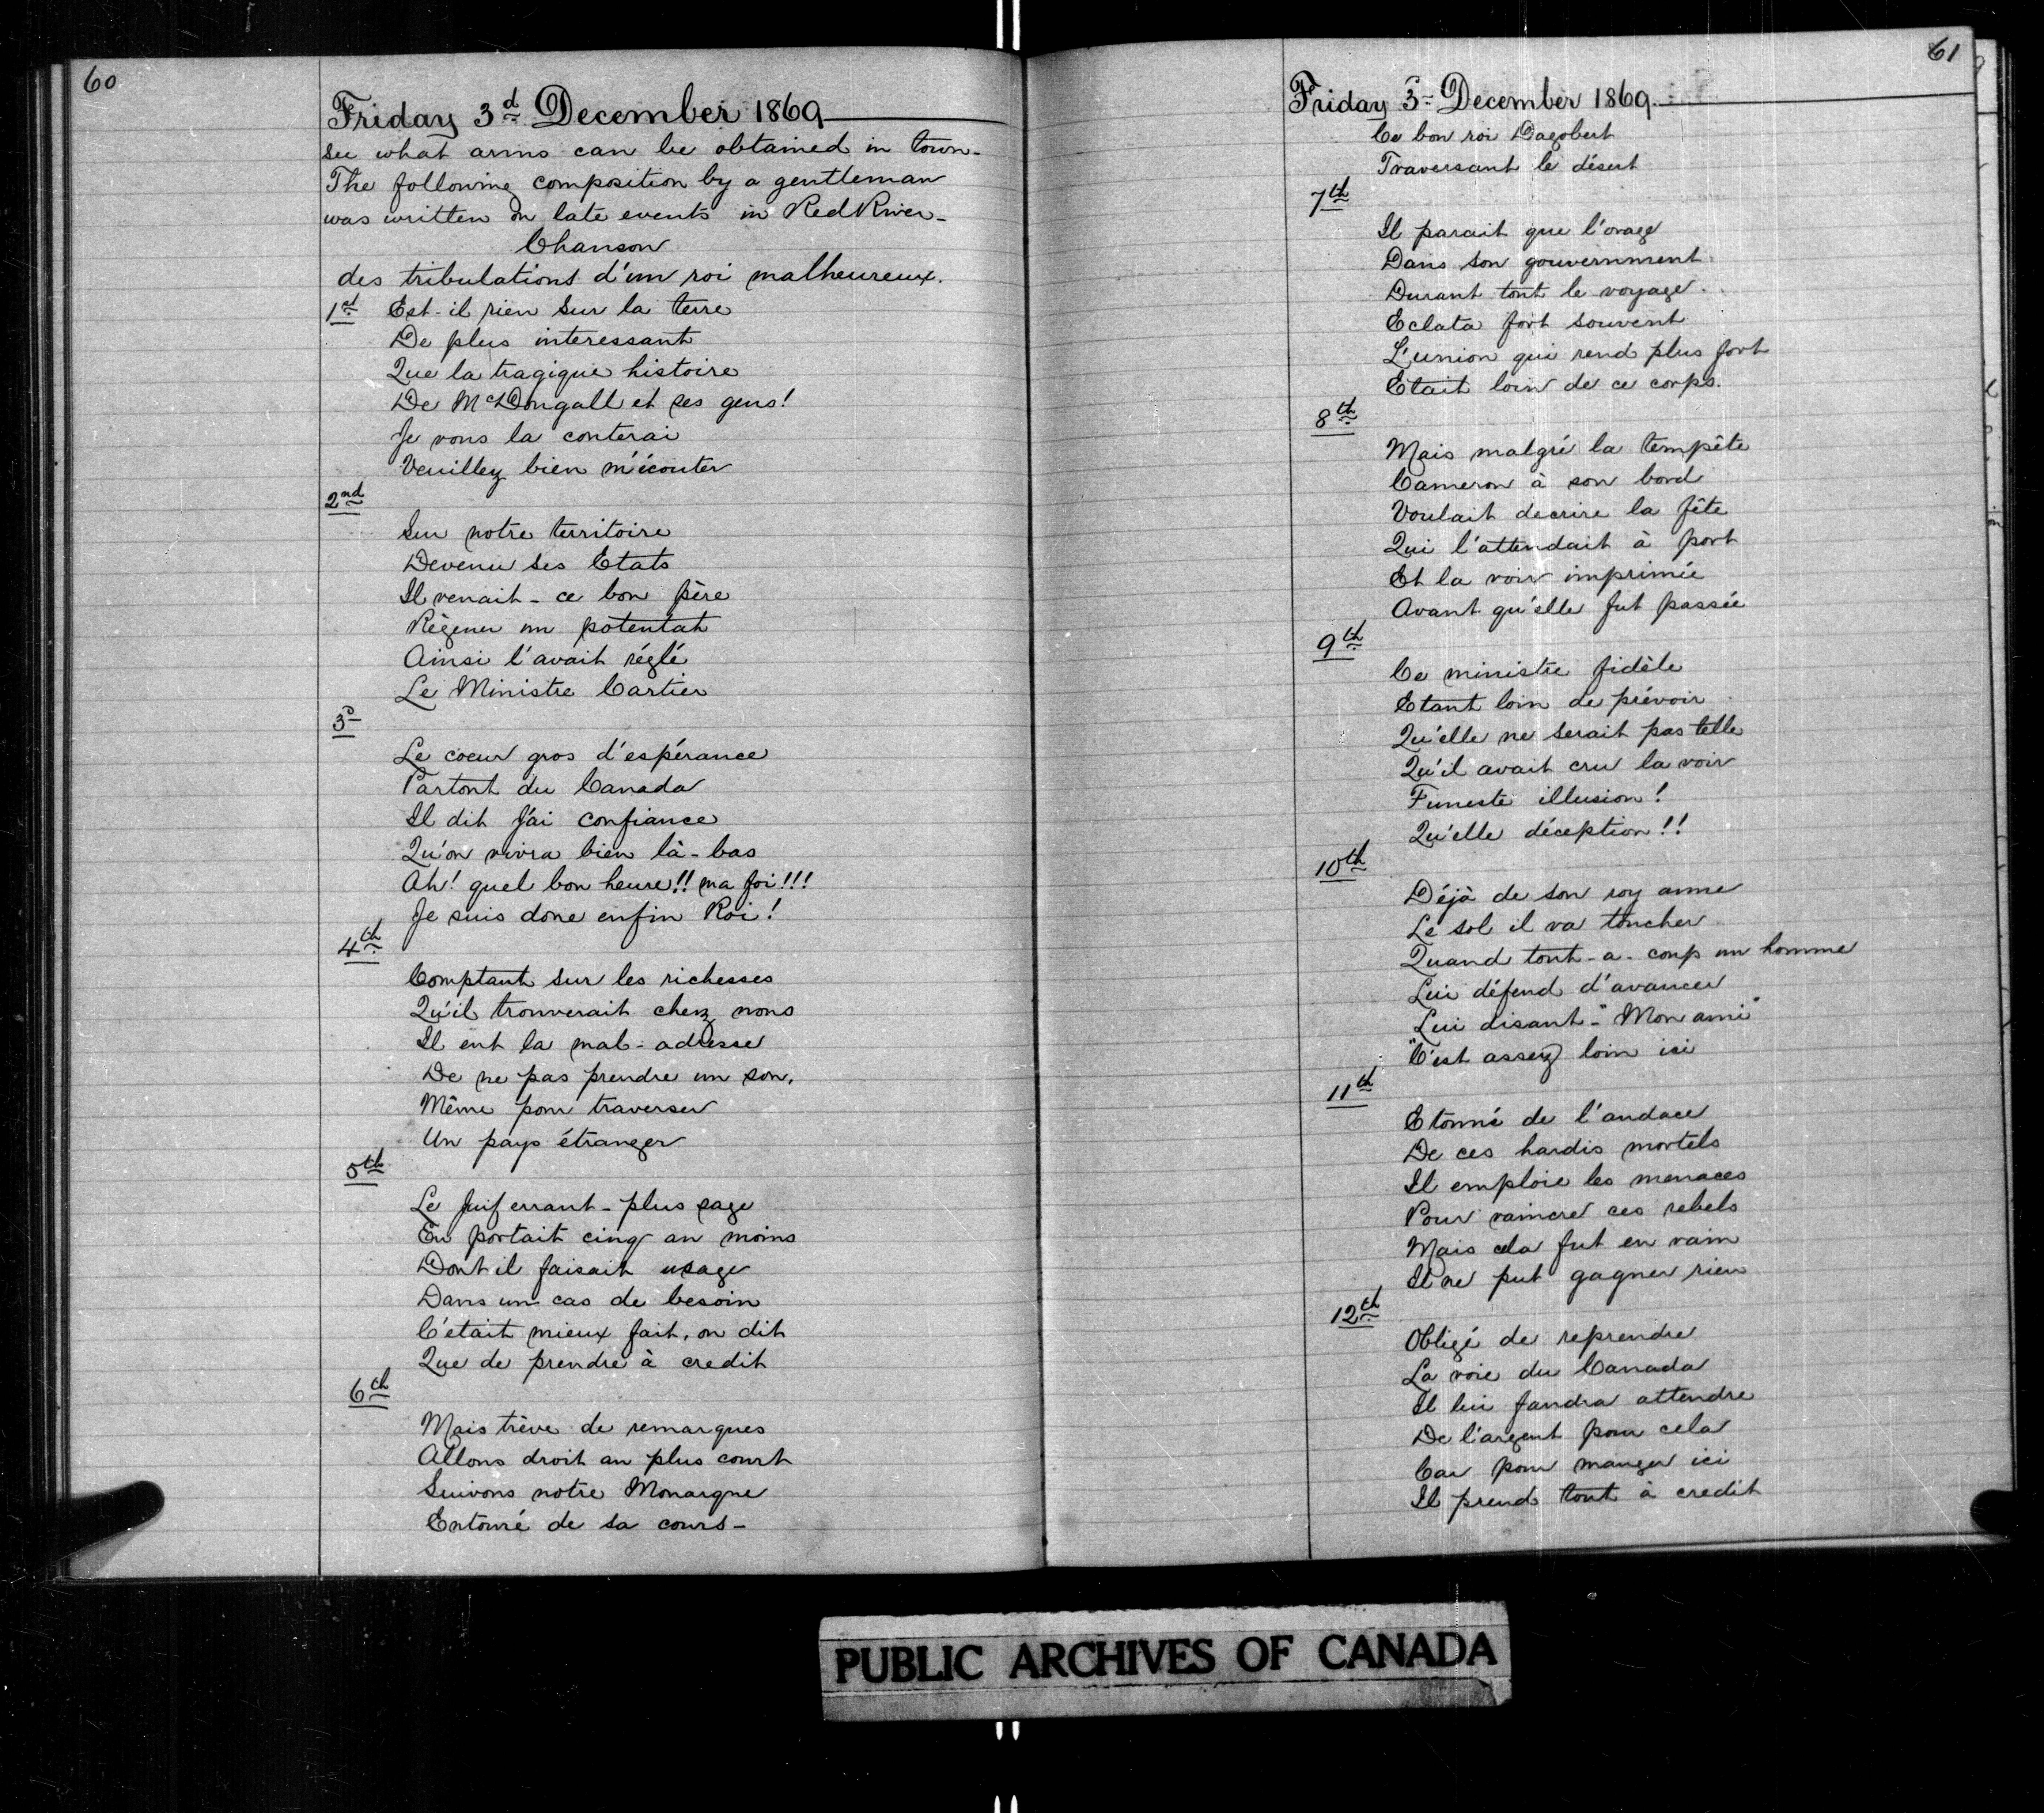 60
Friday 3d December 1869
see what arms can be obtained in town-
The following composition by a gentleman
was written on late events in Red River-
Chanson
des tribulations d'un roi malheureux.
1st Est-il rien sur la terre
De plus interessant
Que la tragique histoire
De McDougall et ses gens!
Je vous la conterai
Veuillez bien m'écouter
2nd
Sur notre territoire
Devenu ses Etats
Il venait - ce bon père
Règener un potentat
Ainsi l'avait réglé
Le Ministre Cartier
3d
Le coeur gros d'espérance
Partont du Canada
Il dit J'ai confiance
Qu'on vivra bien là-bas
Ah! quel bon heure!! ma foi!!!
Je suis donc enfin Roi!
4th
Comptant sur les richesses
Qu'il trouverait chez nous
Il eut la mal-adresse
De ne pas prendre un sou,
Même pour traverser
Un pays étranger
5th
Le Juif errant - plus sage
En portait cinq au moins
Dont il faisait usage
Dans un cas de besoin
C'etait mieux fait, on dit
Que de prendre à credit
6th
Mais trève de remarques
Allons droit au plus court
Suivons notre Monarque
Entouré de sa cours-
61
Friday 3d December 1869
Ce bon roi Dagobert
Traversant le désert
7th
Il parait que l'orage
Dans son gouvernment
Durant tout le voyage.
Eclata fort souvent
L'union qui rend plus fort
Etait loin de ce corps.
8th
Mais malgré la tempête
Cameron à son bord
Voulait decrire la fête
Qui l'attendait à port
Et la voir imprimée
Avant qu'elle fut passée
9th
Ce ministre fidèle
Etant loin de prévoir
Qu'elle ne serait pas telle
Qu'il avait cru la voir
Funeste illusion!
Qu'elle déception!!
10th
Déjà de son roy aume
Le sol il va toucher
Quand tout-a-coup un homme
Lui défend d'avancer
Lui disant - "Mon ami"
"C'est assez loin ici
11th
Etonné de l'audace
De ces hardis mortels
Il emploie les menaces
Pour vaincre ces rebels
Mais cela fut en vain
Il ne put gagner rien
12th
Obligé de reprendre
La voie du Canada
Il lui faudra attendre
De l'argent pour cela
Car pour manger ici
Il prend tout à credit
PUBLIC ARCHIVES OF CANADA